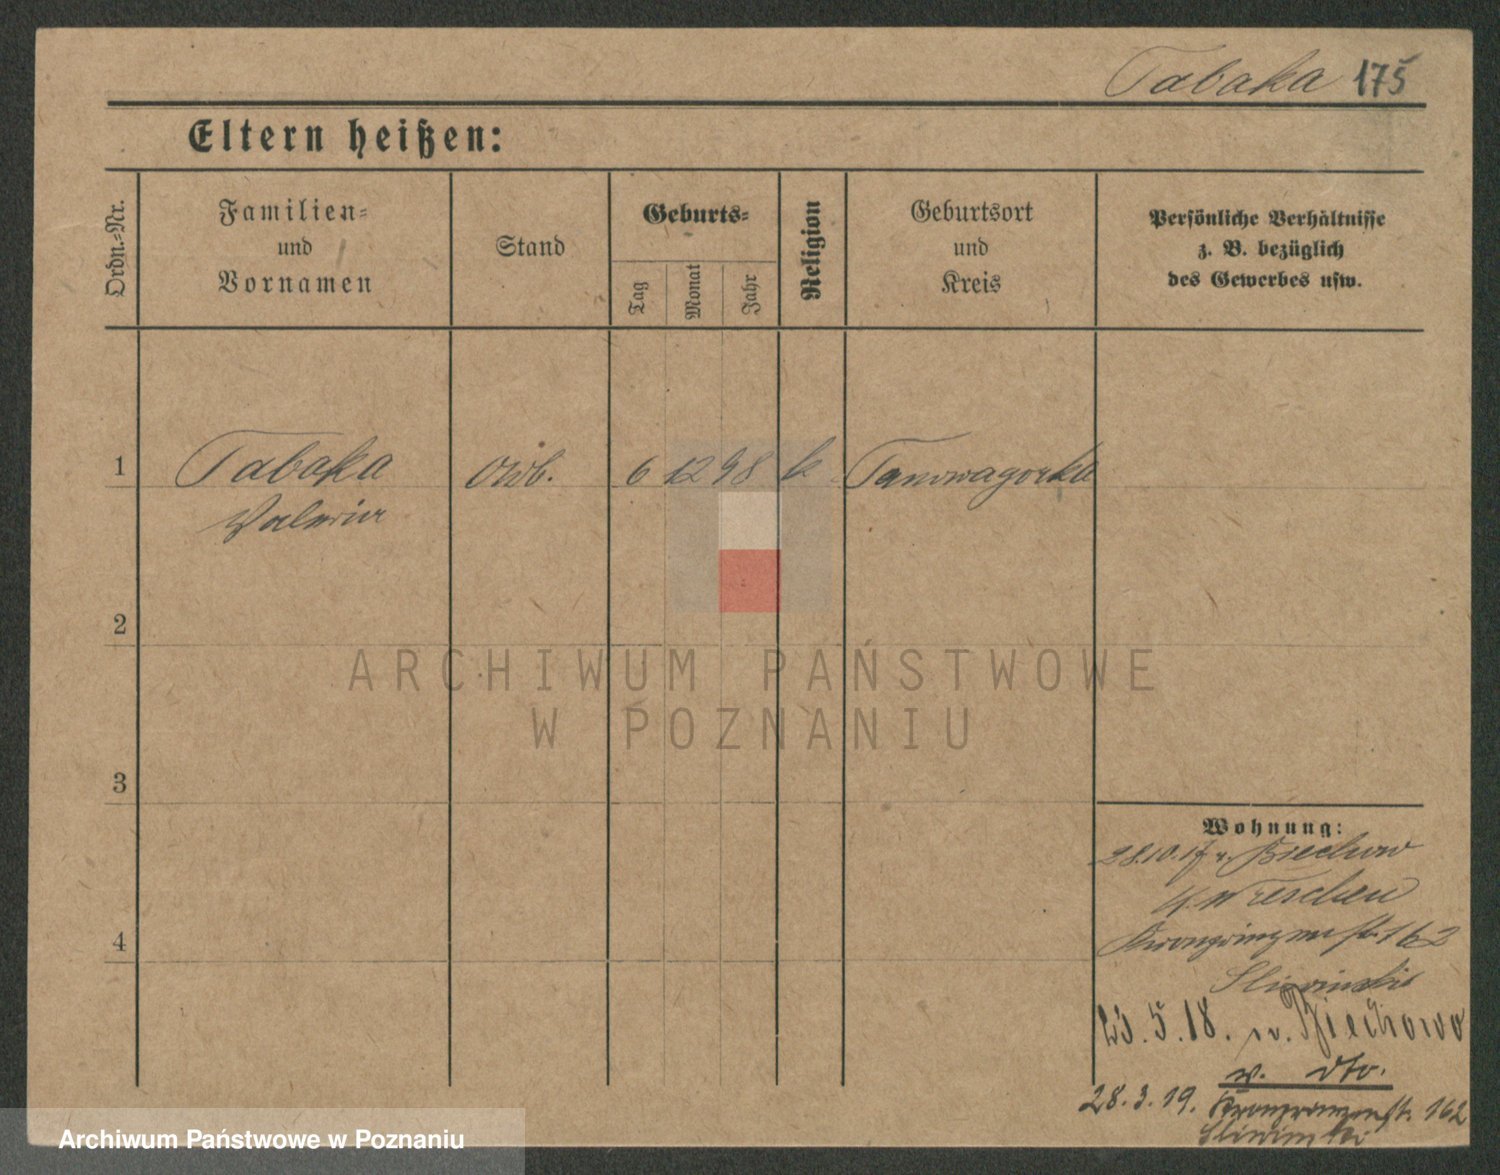 Tabaka 175
Eltern heißen:
Ordn.-Nr.
Familien-
und
Vornamen
Stand
Geburts-
Tag
Monat
Jahr
Religion
Geburtsort
und
Kreis
Persönliche Verhältnisse
z. B. bezüglich
des Gewerbes usw.
1 Tabaka 6 12 98 k
Valeria
2
3
4
Wohnung:
28.10.17 v. Biechowo
Kr. Wreschen
Kronprinzenstr. 162
Sliwinski
23.5.18. n. Biechowo
v. dto.
28.3.19. Kronprinzenstr. 162
Sliwinski
ARCHIWUM PAŃSTWOWE
W POZNANIU
Archiwum Państwowe w Poznaniu